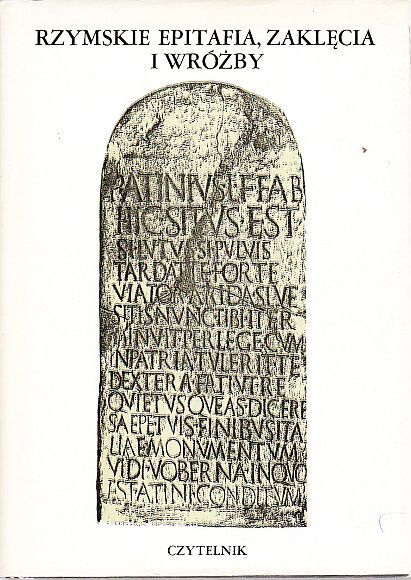 RZYMSKIE EPITAFIA, ZAKLĘCIA
I WRÓŻBY
P·ATINIVS·L·F·FAB
HIC·SITVS·EST
SI·LVTVS·SI·PVLVIS
TARDAT·TE·FORTE
VIATOR·ARIDA·SIVE
SITIS·NVNC·TIBI·ITER
MINVIT·PERLEGE·CVM
IN·PATRIA·TVLERIT·TE
DEXTERA·FATI·VT·RE
QVIETVS·QVEAS·DICERE
SAEPE·TVIS·FINIBVS·ITA
LIAE·MONVMENTVM
VIDI·VOBERNA·IN·QVO
EST·ATINI·CONDITVM
CZYTELNIK